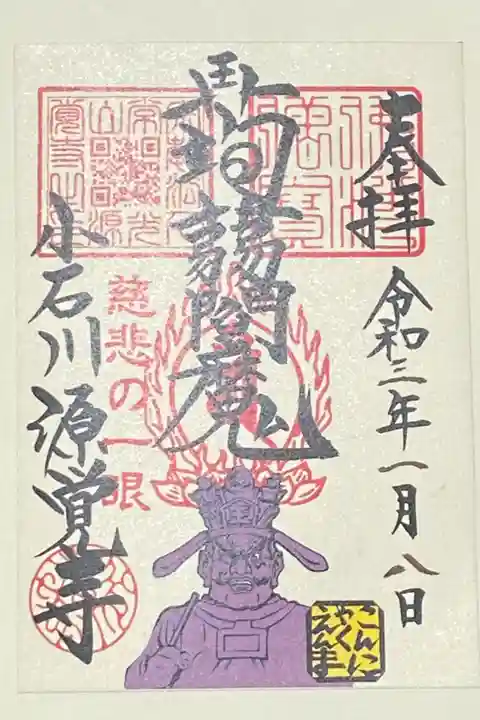 奉拝
令和三年一月八日
佛法僧寶
蒟蒻閻魔
慈悲の一眼
小石川源覚寺
こんに
ゃく
えんま